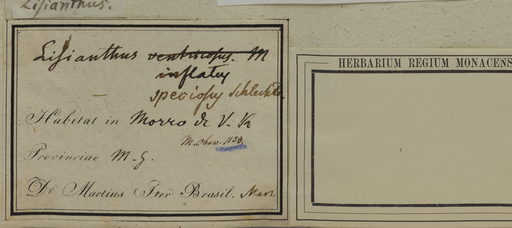 Lisianthus.
Lisianthus ventricosus. M
inflatus
speciosus Schlechtd.
Habitat in Morro de V. R
M. Obs. 1153.
Provinciae M. G.
De Martius Iter Brasil. Mart
HERBARIUM REGIUM MONACENS